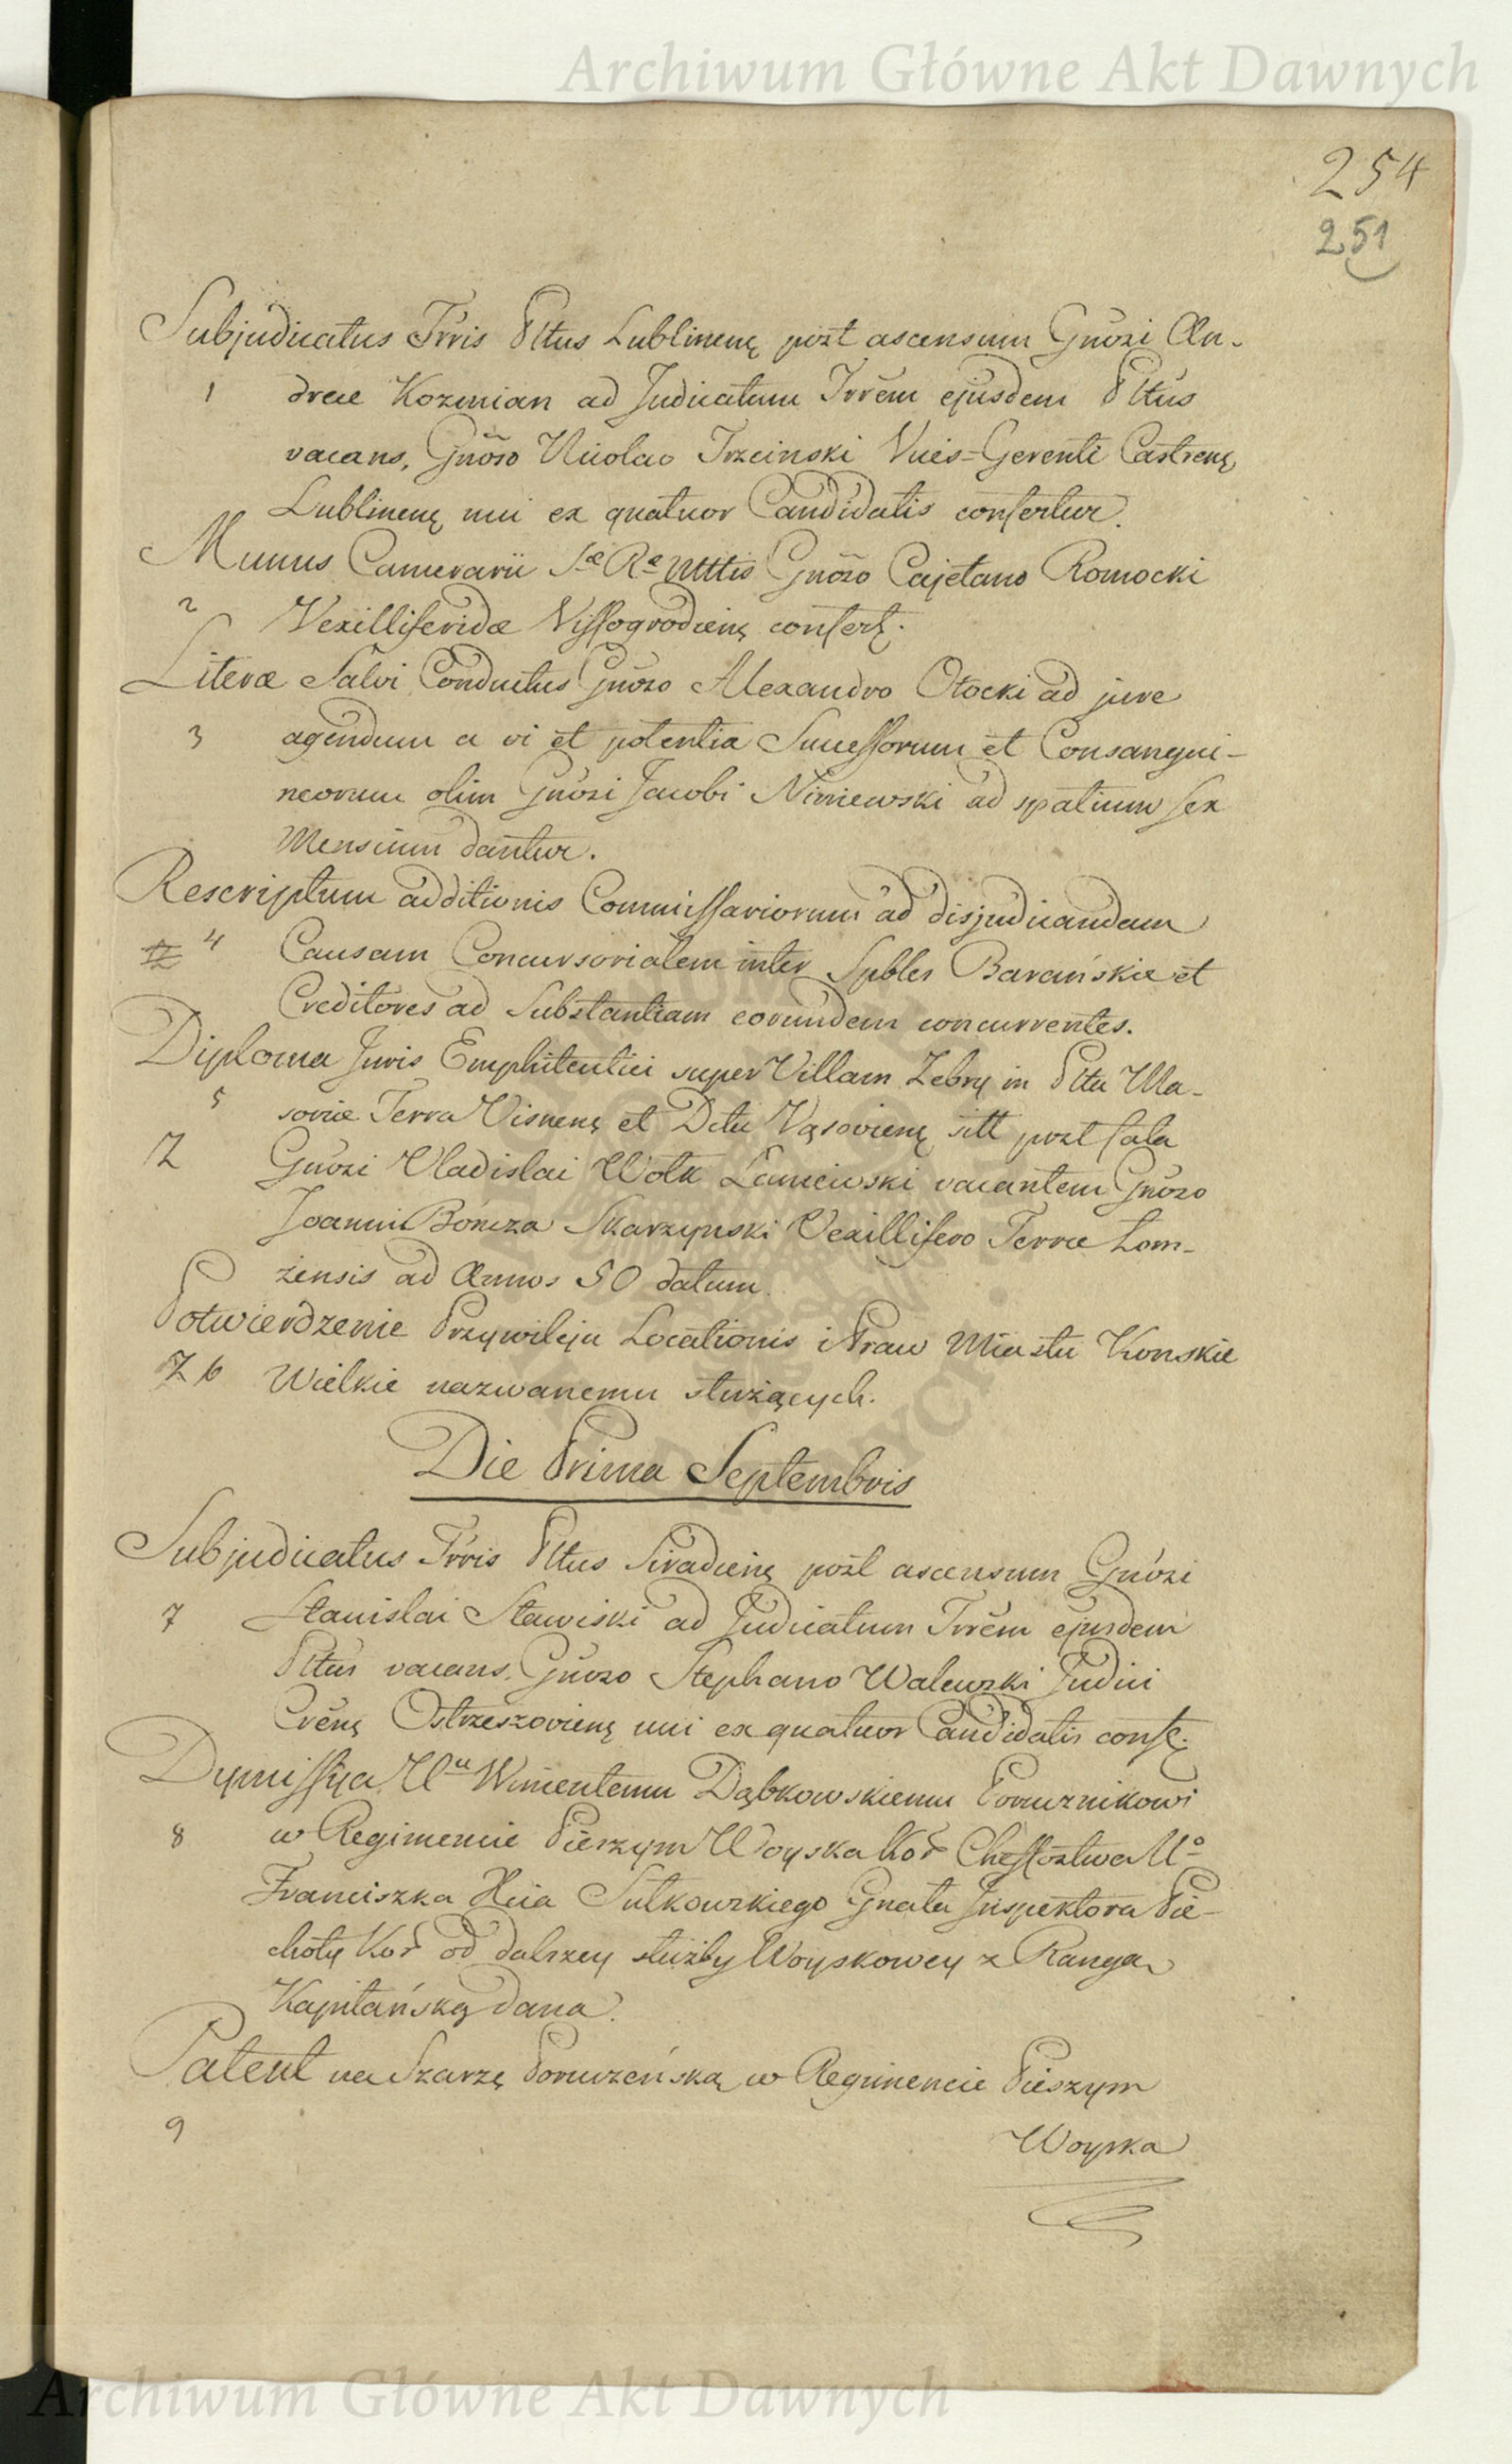 Archiwum Główne Akt Dawnych
254
251
Subjudicatus Trris Pltus Lublinenę post ascensum Gnosi An-
1 dreæ Kozmian ad Judicatum Trrem ejusdem Pltus
vacans, Gnoso Nicolao Trzcinski Vices=Gerenti Castrenę
Lublinenę uni ex quatuor Candidatis confertur.
Munus Camerarii Sæ Ræ Mttis Gnoso Cajetano Romocki
2 Vexilliferidæ Vissogrodienę confertę.
Literæ Salvi Conductus Gnoso Alexandro Otocki ad jure
3 agendum a vi et potentia Successorum et Consangui-
neorum olim Gnosi Jacobi Niniewski ad spatium sex
Mensium dantur.
Rescriptum additionis Commissariorum ad disjudicandam
4 Causam Concursorialem inter Spbles Barańskie et
Creditores ad Substantiam eorundem concurrentes.
Diploma Juris Emphiteutici super Villam Zebry in Pltu Ma-
5 soviæ Terra Visnenę et Dctu Wąsovienę sitt post fata
Z Gnosi Vladislai Wołk Łaniewski vacantem Gnoso
Joanni Bończa Skarzynski Vexillifero Terræ Lom-
zensis ad Annos 50 datum.
Potwierdzenie Przywileju Locationis i Praw Miastu Konskie
Z 6 Wielkie nazwanemu służących.
Die Prima Septembris
Subjudicatus Trris Pltus Siradienę post ascensum Gnosi
7 Stanislai Stawiski ad Judicatum Trrem ejusdem
Pltus vacans, Gnoso Stephano Walewski Judici
Crenę Ostrzeszovienę uni ex quatuor Candidatis confę.
Dymissya Uu Wincentemu Dąbkowskiemu Porucznikowi
8 w Regimencie Pieszym Woyska Kor Cheffostwa Uo
Franciszka Xcia Sułkowskiego Gnała Inspektora Pie-
choty Kor od dalszey służby Woyskowey z Rangą
Kapitańską dana.
Patent na Szarżę Poruczeńską w Regimencie Pieszym
9 Woyska
Archiwum Główne Akt Dawnych